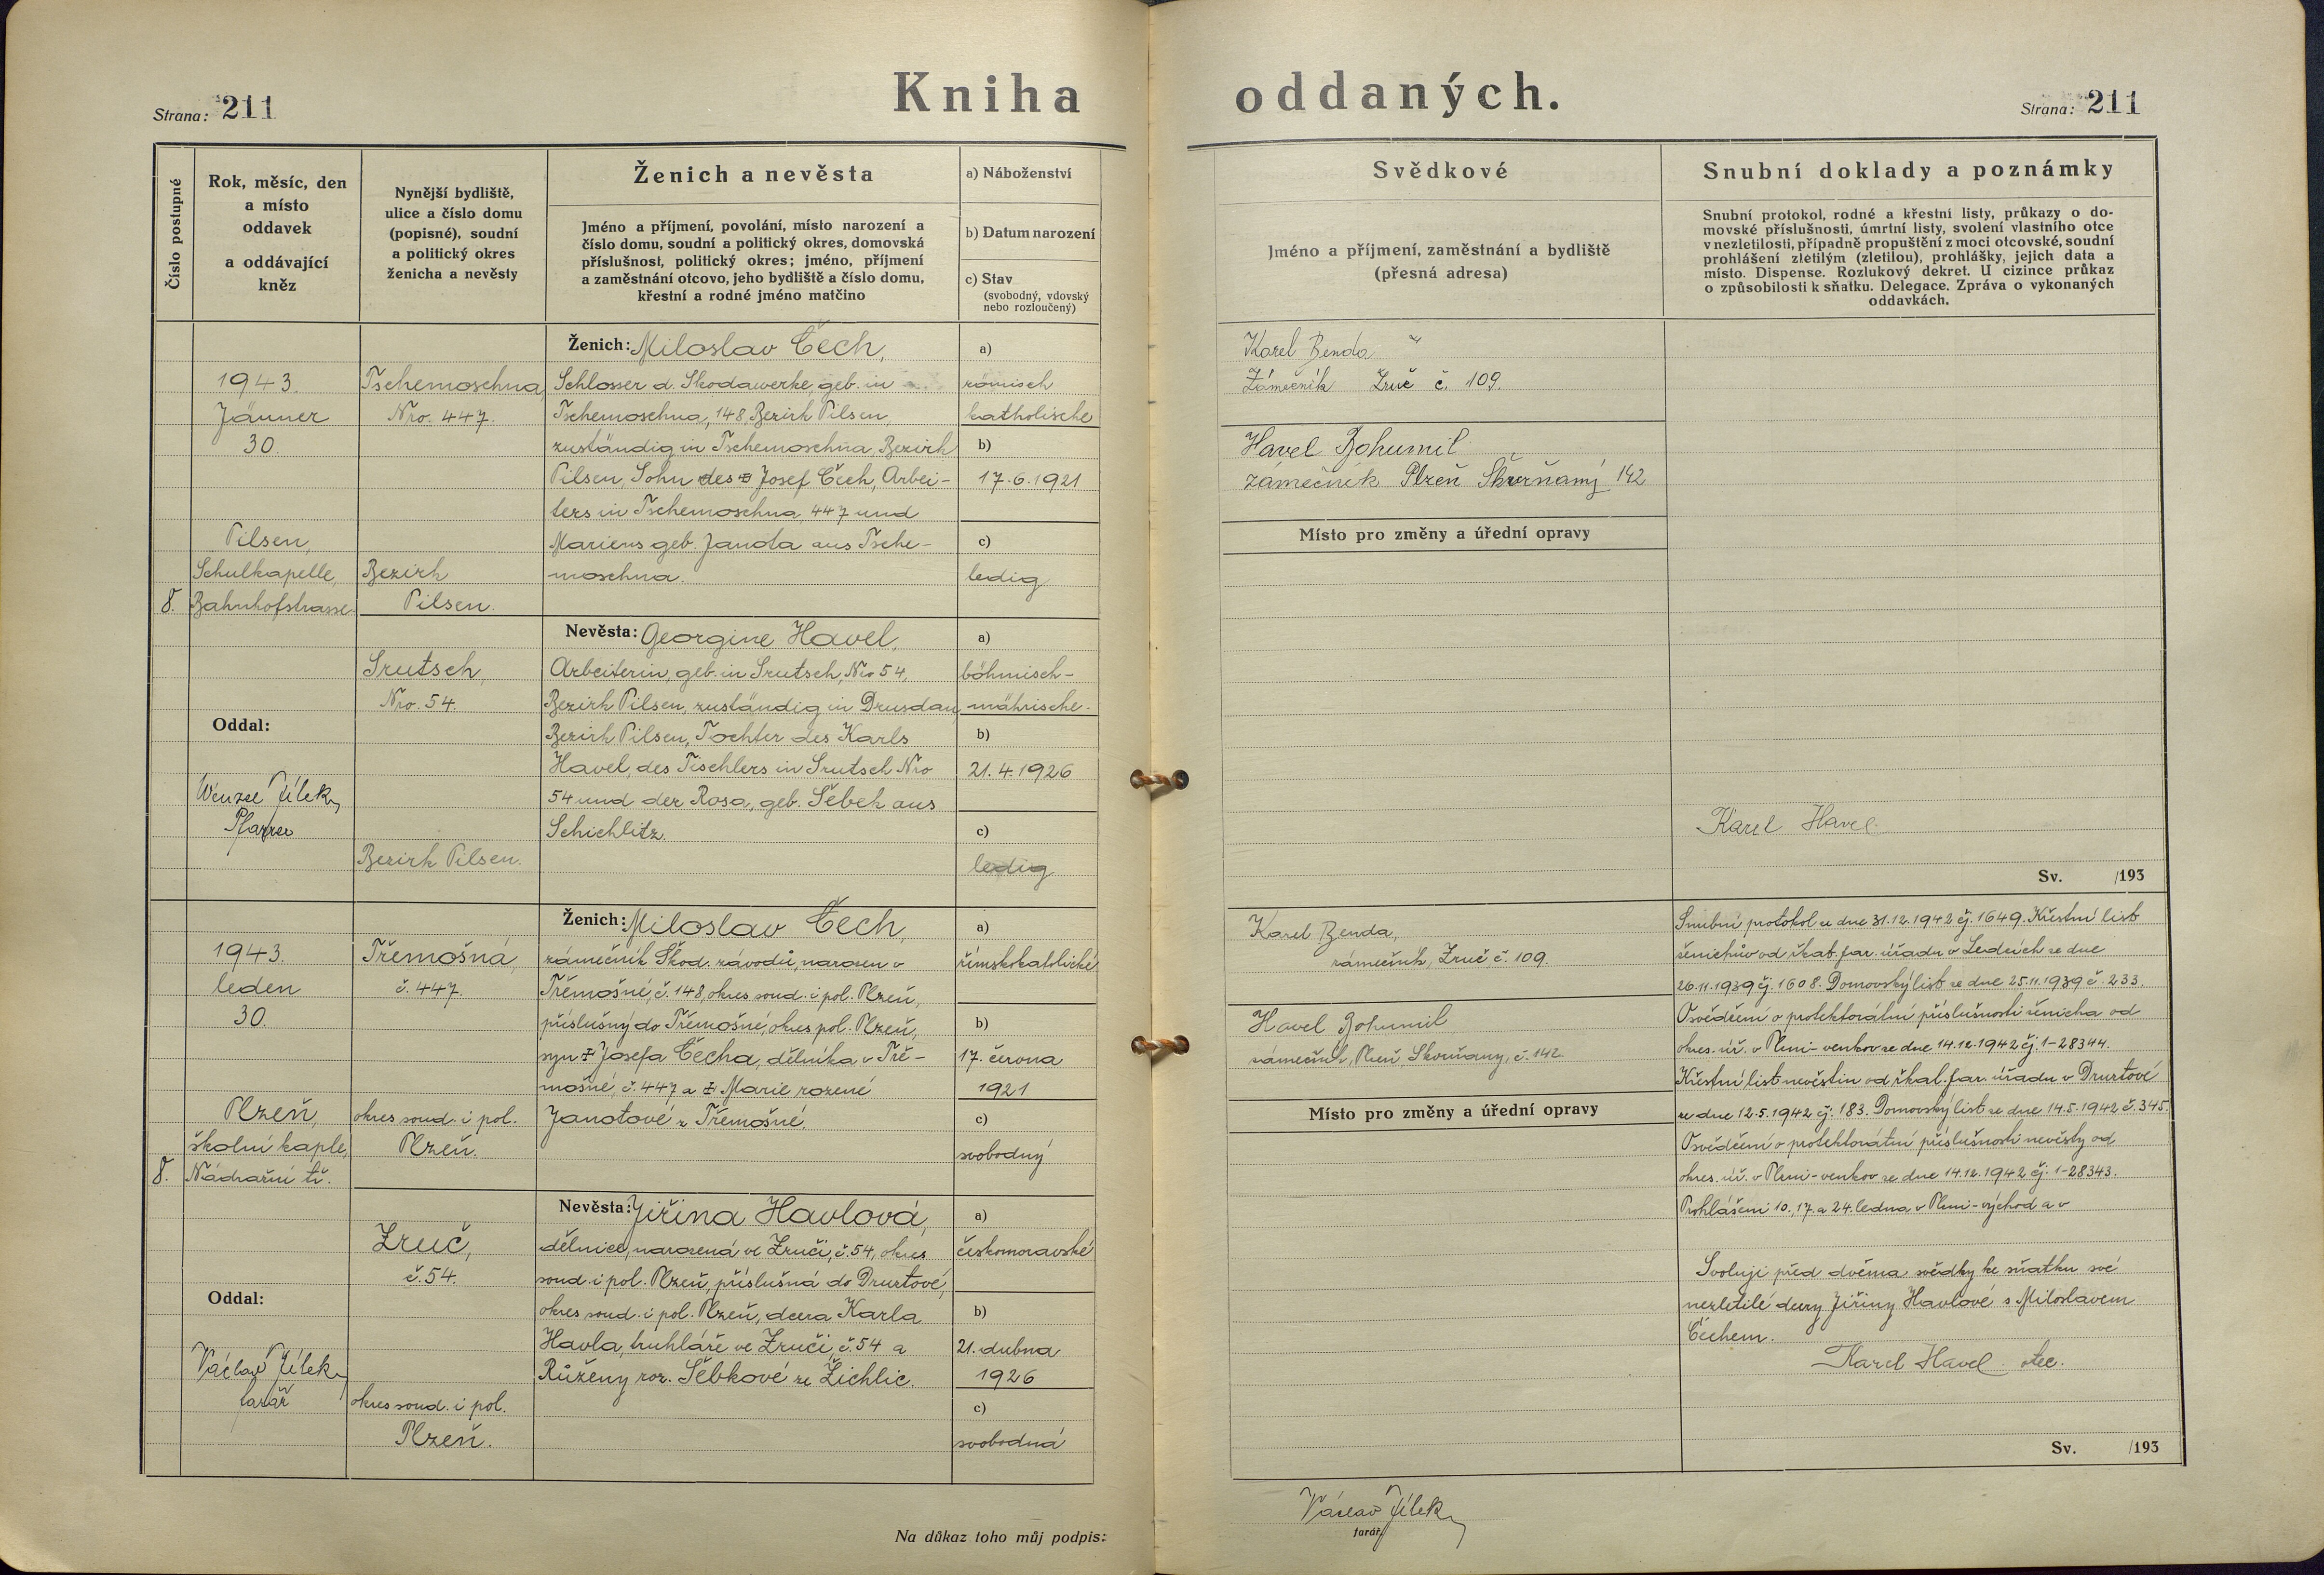 Kniha oddaných.
Strana: 211
Strana: 211
Číslo postupné
Rok, měsíc, den
a místo
oddavek
a oddávající
kněz
Nynější bydliště,
ulice a číslo domu
(popisné), soudní
a politický okres
ženicha a nevěsty
Ženich a nevěsta
Jméno a příjmení, povolání, místo narození a
číslo domu, soudní a politický okres, domovská
příslušnost, politický okres; jméno, příjmení
a zaměstnání otcovo, jeho bydliště a číslo domu,
křestní a rodné jméno matčino
a) Náboženství
b) Datum narození
c) Stav
(svobodný, vdovský
nebo rozloučený)
Svědkové
Jméno a příjmení, zaměstnání a bydliště
(přesná adresa)
Snubní doklady a poznámky
Snubní protokol, rodné a křestní listy, průkazy o do-
movské příslušnosti, úmrtní listy, svolení vlastního otce
v nezletilosti, případně propuštění z moci otcovské, soudní
prohlášení zletilým (zletilou), prohlášky, jejich data a
místo. Dispense. Rozlukový dekret. U cizince průkaz
o způsobilosti k sňatku. Delegace. Zpráva o vykonaných
oddavkách.
8.
1943.
Jänner
30.
Pilsen,
Schulkapelle,
Bahnhofstrasse.
Oddal:
Wenzel Jílek,
Pfarrer
Tschemoschna
Nro. 447.
Bezirk
Pilsen.
Ženich: Miloslav Čech,
Schlosser d. Skodawerke, geb. in
Tschemoschna, 148, Bezirk Pilsen,
zuständig in Tschemoschna, Bezirk
Pilsen, Sohn des Josef Čech, Arbei-
ters in Tschemoschna, 447 und
Mariens geb. Janota aus Tsche-
moschna.
a)
römisch
katholische
b)
17.6.1921
c)
ledig
Srutsch,
Nro. 54.
Bezirk Pilsen.
Nevěsta: Georgine Havel,
Arbeiterin, geb. in Srutsch, Nro 54,
Bezirk Pilsen, zuständig in Drusdau,
Bezirk Pilsen, Tochter des Karls
Havel, des Tischlers in Srutsch Nro
54 und der Rosa, geb. Sěbek aus
Schichlitz.
a)
böhmisch-
mährische.
b)
21.4.1926
c)
ledig
Karel Benda
Zámečník Zruč č. 109.
Havel Bohumil
zámečník Plzeň Škvrňamy 142
Místo pro změny a úřední opravy
Karel Havel
Sv. /193
8.
1943.
leden
30.
Plzeň,
školní kaple,
Nádražní tř.
Oddal:
Václav Jílek,
farář
Třemošná,
č. 447.
okres soud. i pol.
Plzeň.
Ženich: Miloslav Čech,
zámečník Škod. závodů, narozen v
Třemošné, č. 148, okres soud. i pol. Plzeň,
příslušný do Třemošné, okres pol. Plzeň,
syn Josefa Čecha, dělníka v Tře-
mošné, č. 447 a Marie rozené
Janotové z Třemošné.
a)
římskokatolické
b)
17. června
1921
c)
svobodný
Zruč,
č. 54.
okres soud. i pol.
Plzeň.
Nevěsta: Jiřina Havlová,
dělnice, narozená ve Zruči, č. 54, okres
soud. i pol. Plzeň, příslušná do Druztové,
okres soud. i pol. Plzeň, dcera Karla
Havla, truhláře ve Zruči, č. 54 a
Růženy roz. Sěbkové ze Žichlic.
a)
českomoravské
b)
21. dubna
1926
c)
svobodná
Karel Benda,
zámečník, Zruč č. 109.
Havel Bohumil
zámečník, Plzeň, Skvrňany, č. 142.
Místo pro změny a úřední opravy
Snubní protokol ze dne 31.12.1942 čj. 1649. Křestní list
ženichův od řkat. far. úřadu v Ledcích ze dne
26.11.1939 čj. 1608. Domovský list ze dne 25.11.1939 č. 233.
Osvědčení o protektorátní příslušnosti ženicha od
okres. úř. v Plzni-venkov ze dne 14.12.1942 čj. 1-28344.
Křestní list nevěstin od řkat. far. úřadu v Druztové
ze dne 12.5.1942 čj. 183. Domovský list ze dne 14.5.1942 č. 345.
Osvědčení o protektorátní příslušnosti nevěsty od
okres. úř. v Plzni-venkov ze dne 14.12.1942 čj. 1-28343.
Prohlášeni 10., 17. a 24. ledna v Plzni-východ a v
Svoluji před dvěma svědky ke sňatku své
nezletilé dcery Jiřiny Havlové s Miloslavem
Čechem.
Karel Havel otec.
Sv. /193
Na důkaz toho můj podpis:
Václav Jílek,
farář.